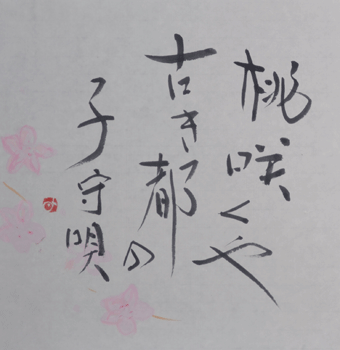 桃咲くや
古き都の
子守唄